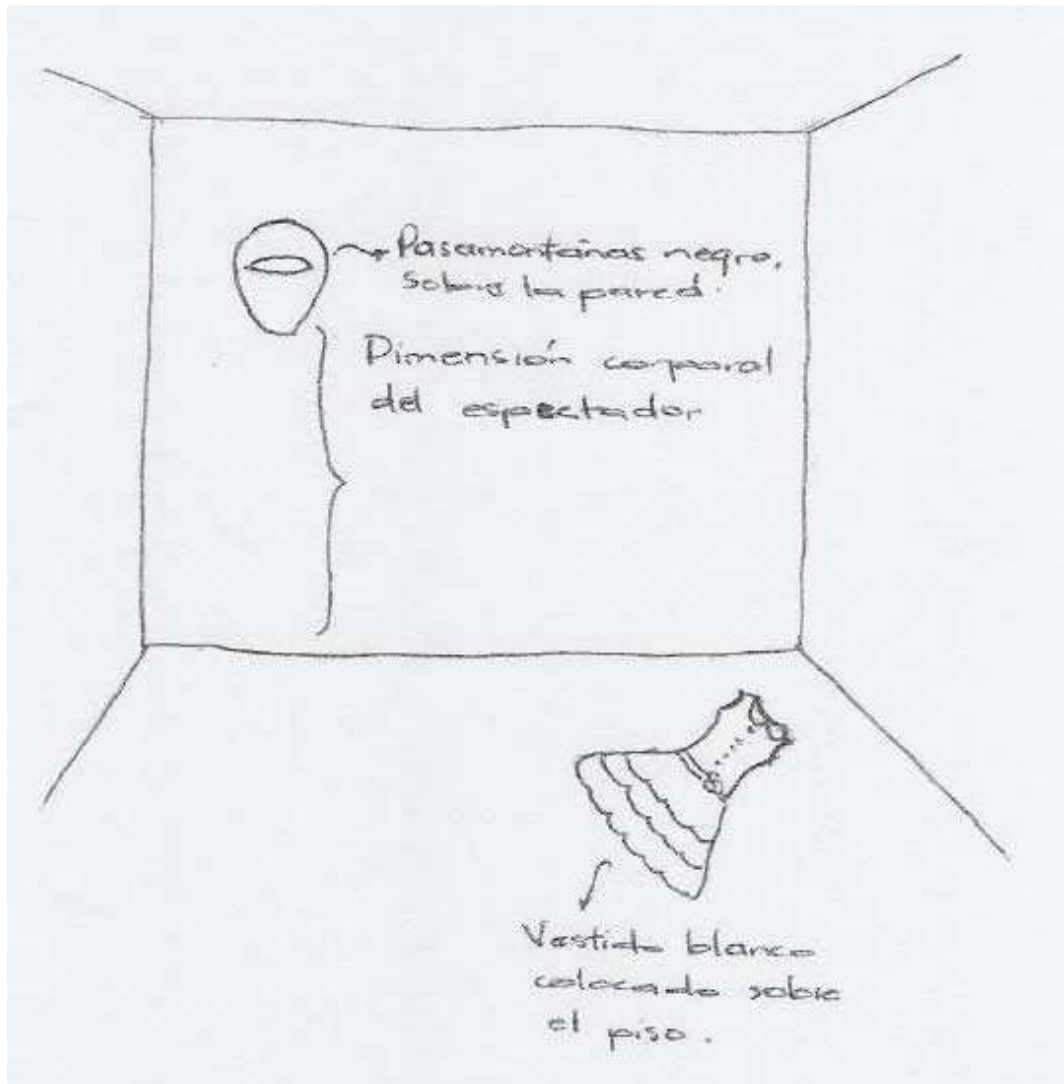 Pasamontañas negro,
sobre la pared.
Dimensión corporal
del espectador
Vestido blanco
colocado sobre
el piso.